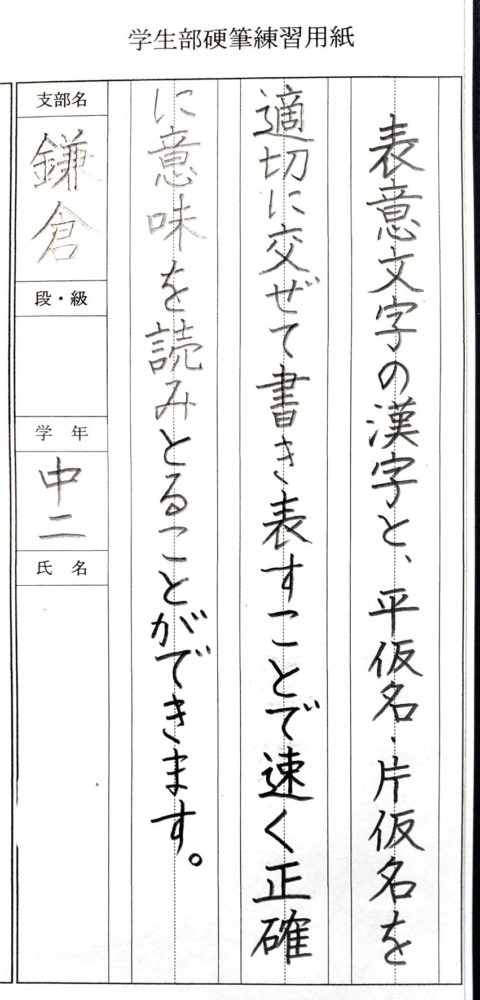 学生部硬筆練習用紙
表意文字の漢字と、平仮名、片仮名を
適切に交ぜて書き表すことで速く正確
に意味を読みとることができます。
支部名
鎌倉
段・級
学年
中二
氏名